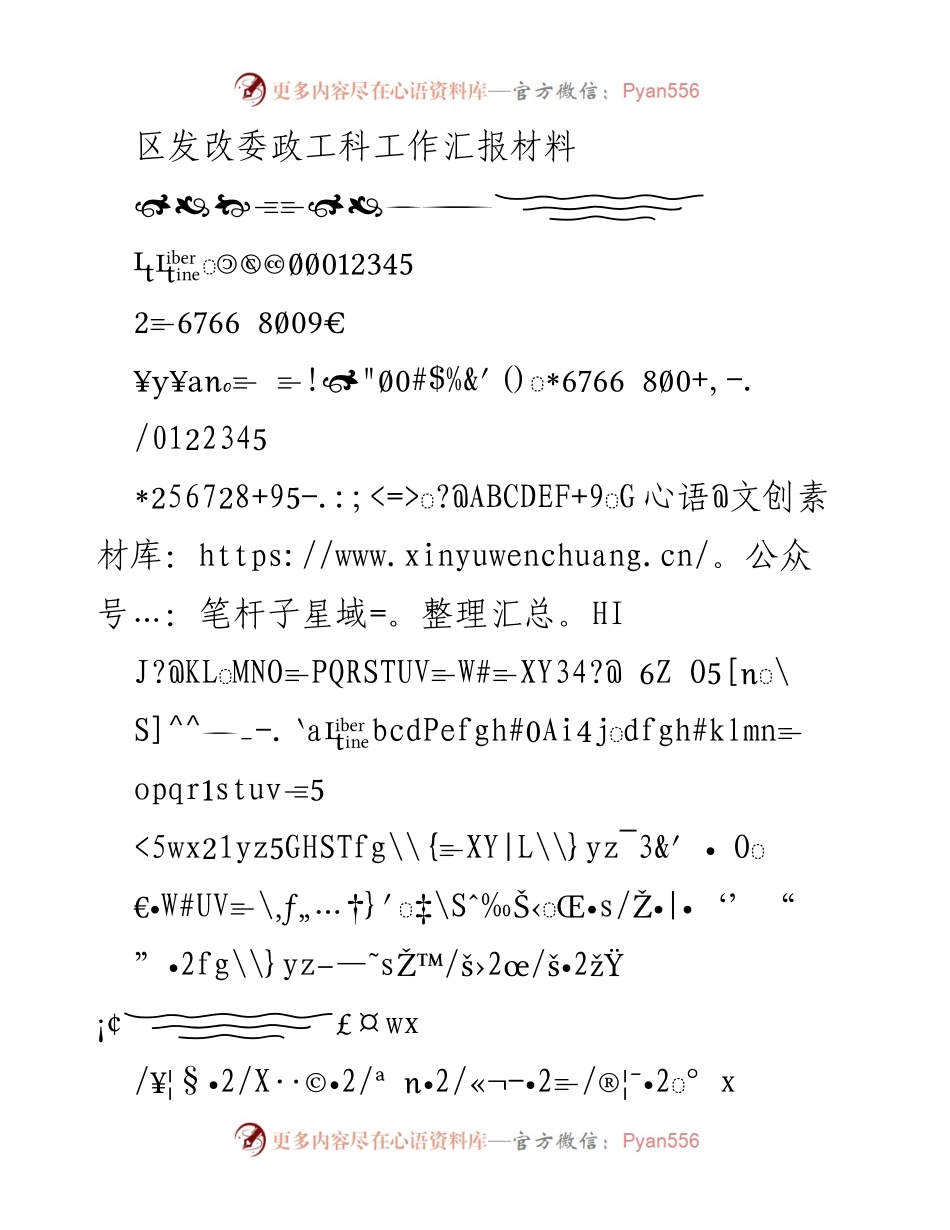 更多内容尽在心语资料库—官方微信：Pyan556
区发改委政工科工作汇报材料
012345
6766 8009€
¥y¥an !"00#$%&′ ()*6766 800+,−.
/0122345
*256728+95−.:;<=>?@ABCDEF+9G 心语@文创素
材库：https://www.xinyuwenchuang.cn/。公众
号…：笔杆子星域=。整理汇总。HI
J?@KLMNO PQRSTUV W# XY34?@ 6Z O5[n\
S]^^—_−.‵a bcdPefgh#0Ai4jdfgh#klmn
opqr1stuv 5
<5wx21yz5GHSTfg\\{ XY|L\\}yz¯3&′ • O
€•W#UV \‚ƒ„…†}′‡\Sˆ‰Š‹Œ•s/Ž•|• ‘’ “
” •2fg\\}yz–—˜sŽ™/š›2œ/š•2žŸ
¡¢ £¤wx
/¥¦§•2/X··©•2/ª n•2/«¬−•2 /®¦¯•2° x
更多内容尽在心语资料库—官方微信：Pyan556